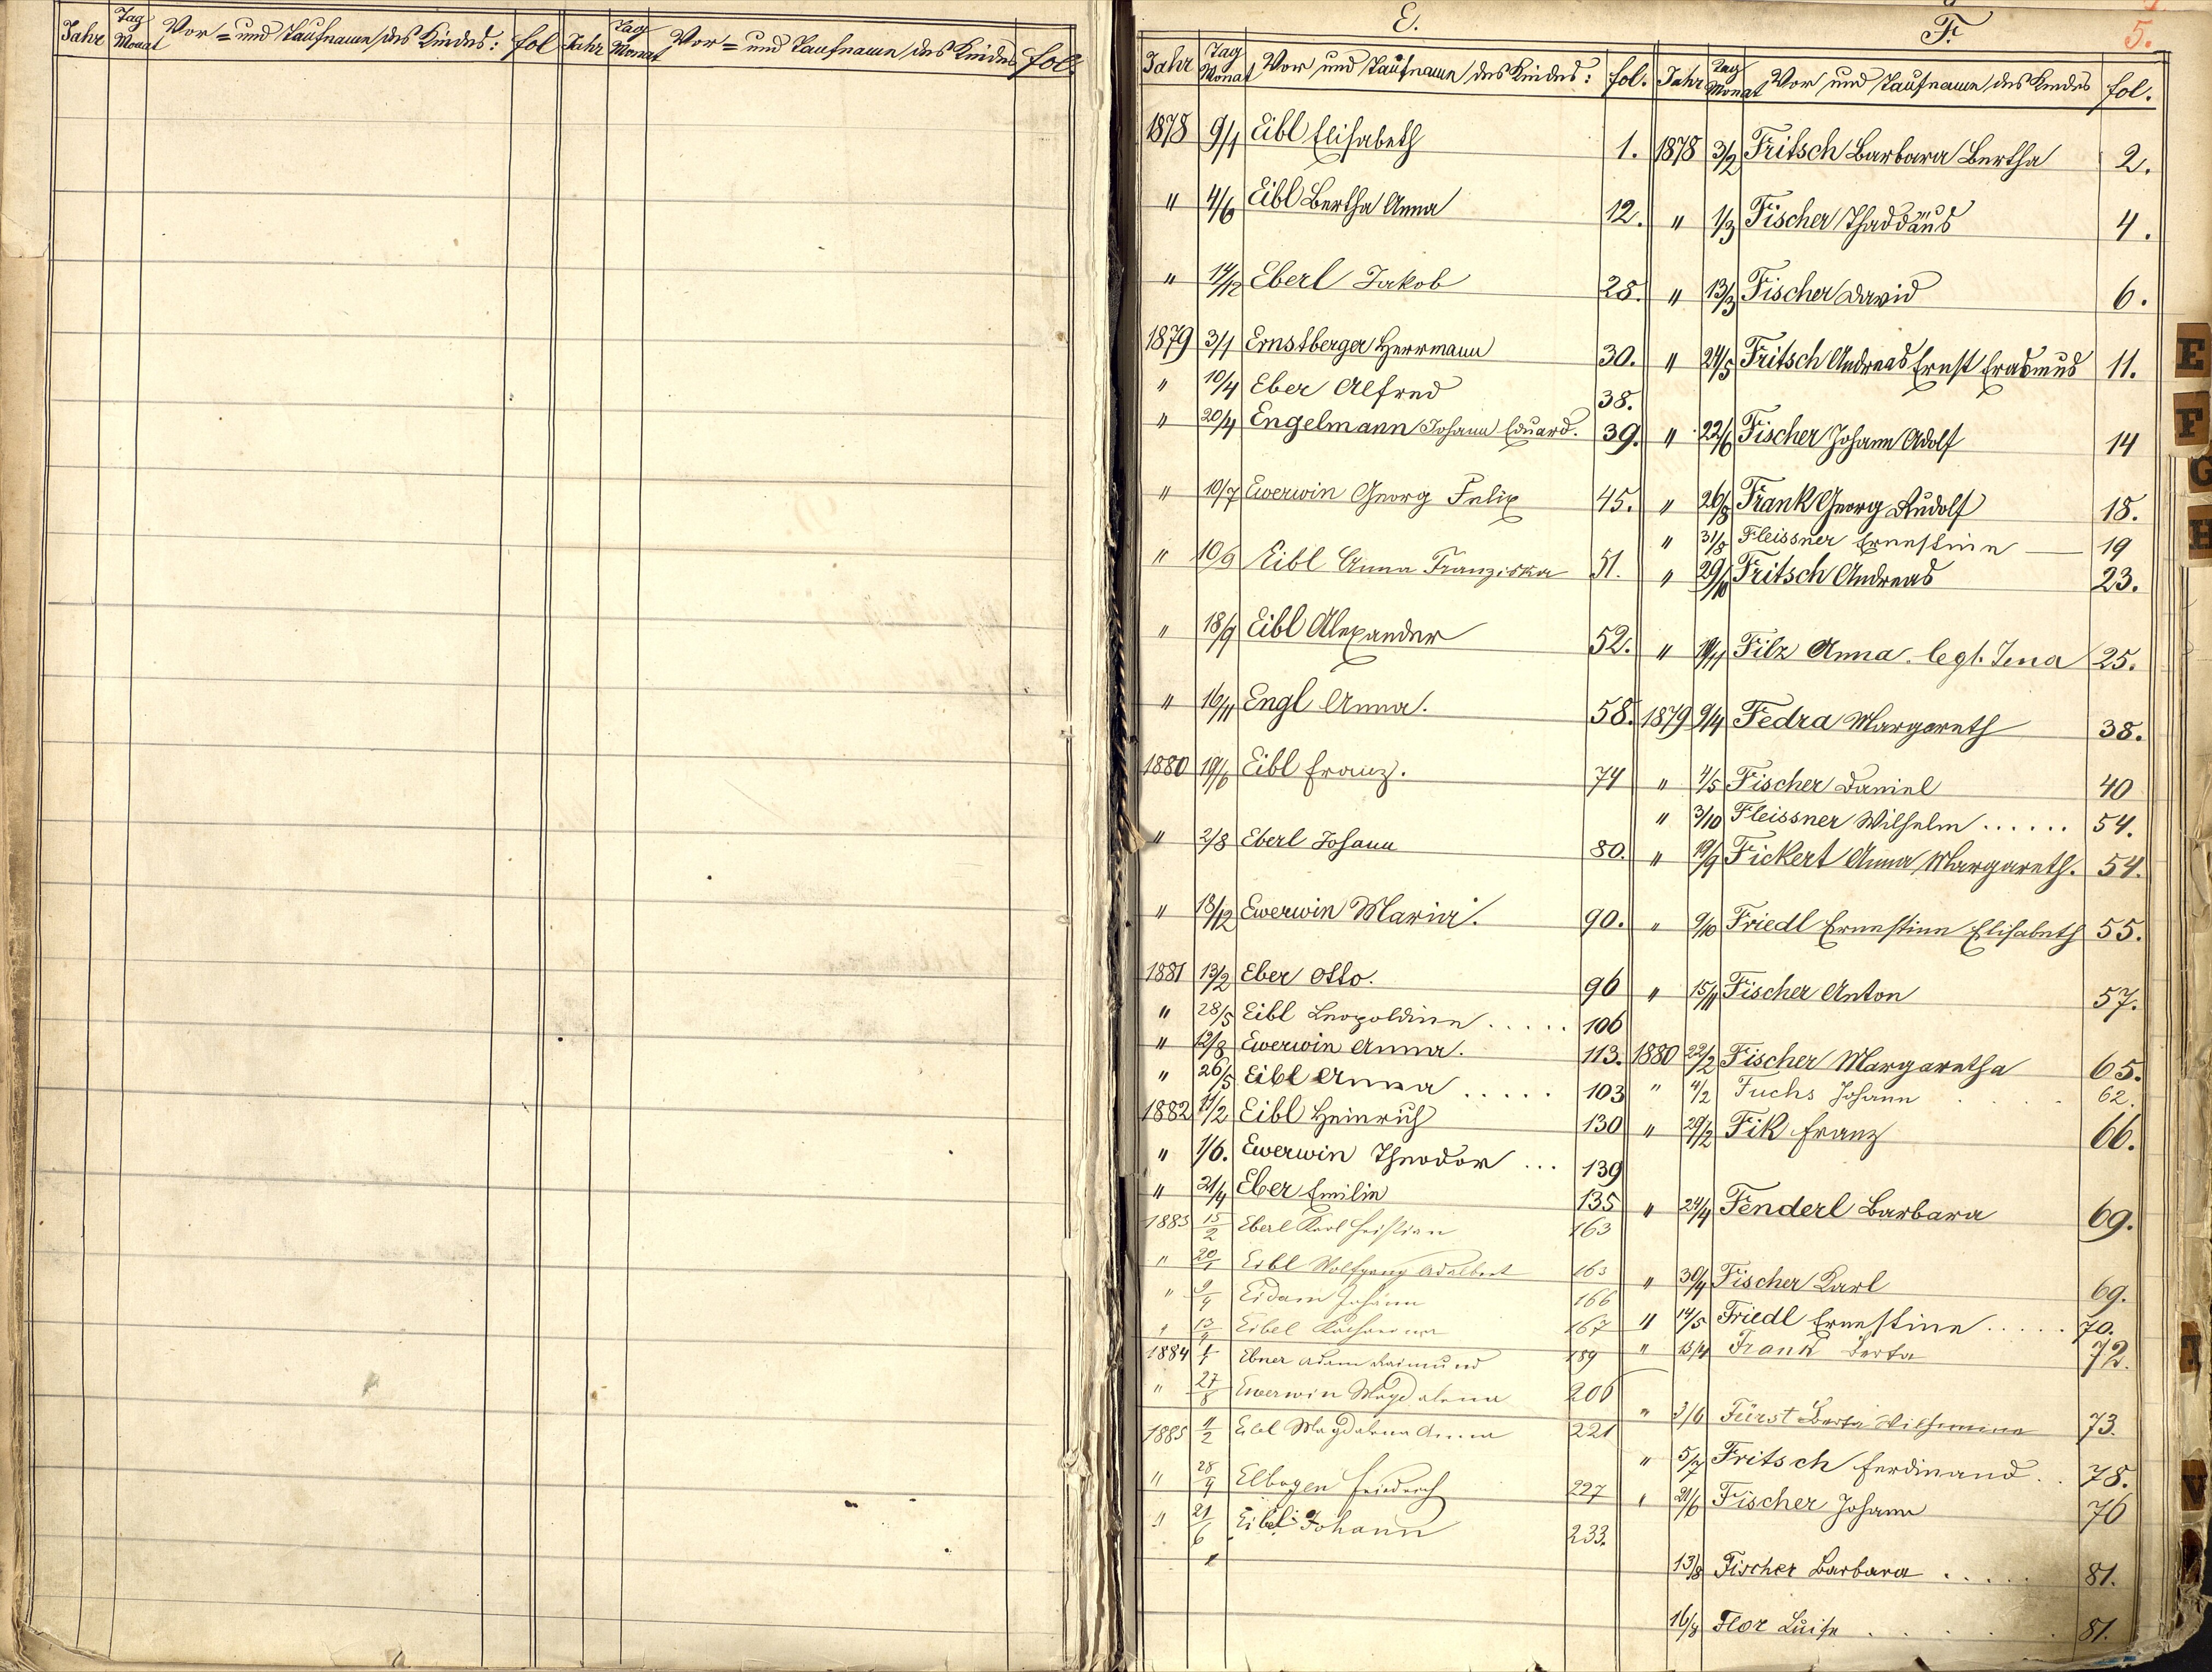 Jahr Tag Monat Vor- und Taufname des Kindes: fol Jahr Tag Monat Vor- und Taufname des Kindes fol.
E.
Jahr Tag Monat Vor und Taufname des Kindes: fol.
1878 9/1 Eibl Elisabeth 1.
" 4/6 Eibl Bertha Anna 12.
" 14/12 Eberl Jakob 28.
1879 3/1 Ernstberger Herrmann 30.
" 10/4 Eber Alfred 38.
" 20/4 Engelmann Johann Eduard. 39.
" 10/7 Ewerwin Georg Felix 45.
" 10/9 Eibl Anna Franziska 51.
" 18/9 Eibl Alexander 52.
" 16/11 Engl Anna. 58.
1880 19/6 Eibl Franz. 74
" 2/8 Eberl Johann 80.
" 18/12 Ewerwin Maria. 90.
1881 13/2 Eber Otto. 96
" 28/5 Eibl Leopoldine ..... 106
" 12/8 Ewerwin Anna. 113.
" 26/5 Eibl Anna ..... 103
1882 11/2 Eibl Heinrich 130
" 1/6. Ewerwin Theodor ... 139
" 21/4 Eber Emilie 135
1883 15/2 Eberl Karl Christian 163
" 20/1 Eibl Wolfgang Adalbert 163
" 9/4 Eidam Johann 166
" 13/4 Eibel Katharina 167
1884 1/1 Ebner Adam Raimund 189
" 27/8 Ewerwin Magdalena 206
1885 11/2 Eibl Magdalena Anna 221
" 28/4 Elbogen Friedrich 227
" 21/6 Eibel Johann 233.
"
F. 5.
Jahr Tag Monat Vor und Taufname des Kindes fol.
1878 3/2 Fritsch Barbara Bertha 2.
" 1/3 Fischer Thaddäus 4.
" 13/3 Fischer David 6.
" 24/5 Fritsch Andreas Ernst Erasmus 11.
" 22/6 Fischer Johann Adolf 14
" 26/8 Frank Georg Rudolf 18.
" 31/8 Fleissner Ernestine — 19
" 29/10 Fritsch Andreas 23.
" 19/11 Filz Anna. legt. Jena 25.
1879 9/4 Fedra Margareth 38.
" 4/5 Fischer Daniel 40
" 3/10 Fleissner Wilhelm ...... 54.
" 19/9 Fickert Anna Margareth. 54.
" 9/10 Friedl Ernestine Elisabeth 55.
" 15/11 Fischer Anton 57.
1880 22/2 Fischer Margaretha 65.
" 4/2 Fuchs Johann ..... 62.
" 29/2 Fik Franz 66.
" 24/4 Fenderl Barbara 69.
" 30/4 Fischer Karl 69.
" 14/5 Friedl Ernestine ..... 70.
" 13/4 Frank Berta 72.
" 3/6 Fürst Berta Wilhelmine 73.
" 5/7 Fritsch Ferdinand .. 78.
" 21/6 Fischer Johann 76
13/8 Fischer Barbara ..... 81.
16/8 Flor Luise ..... 81.
E
F
G
H